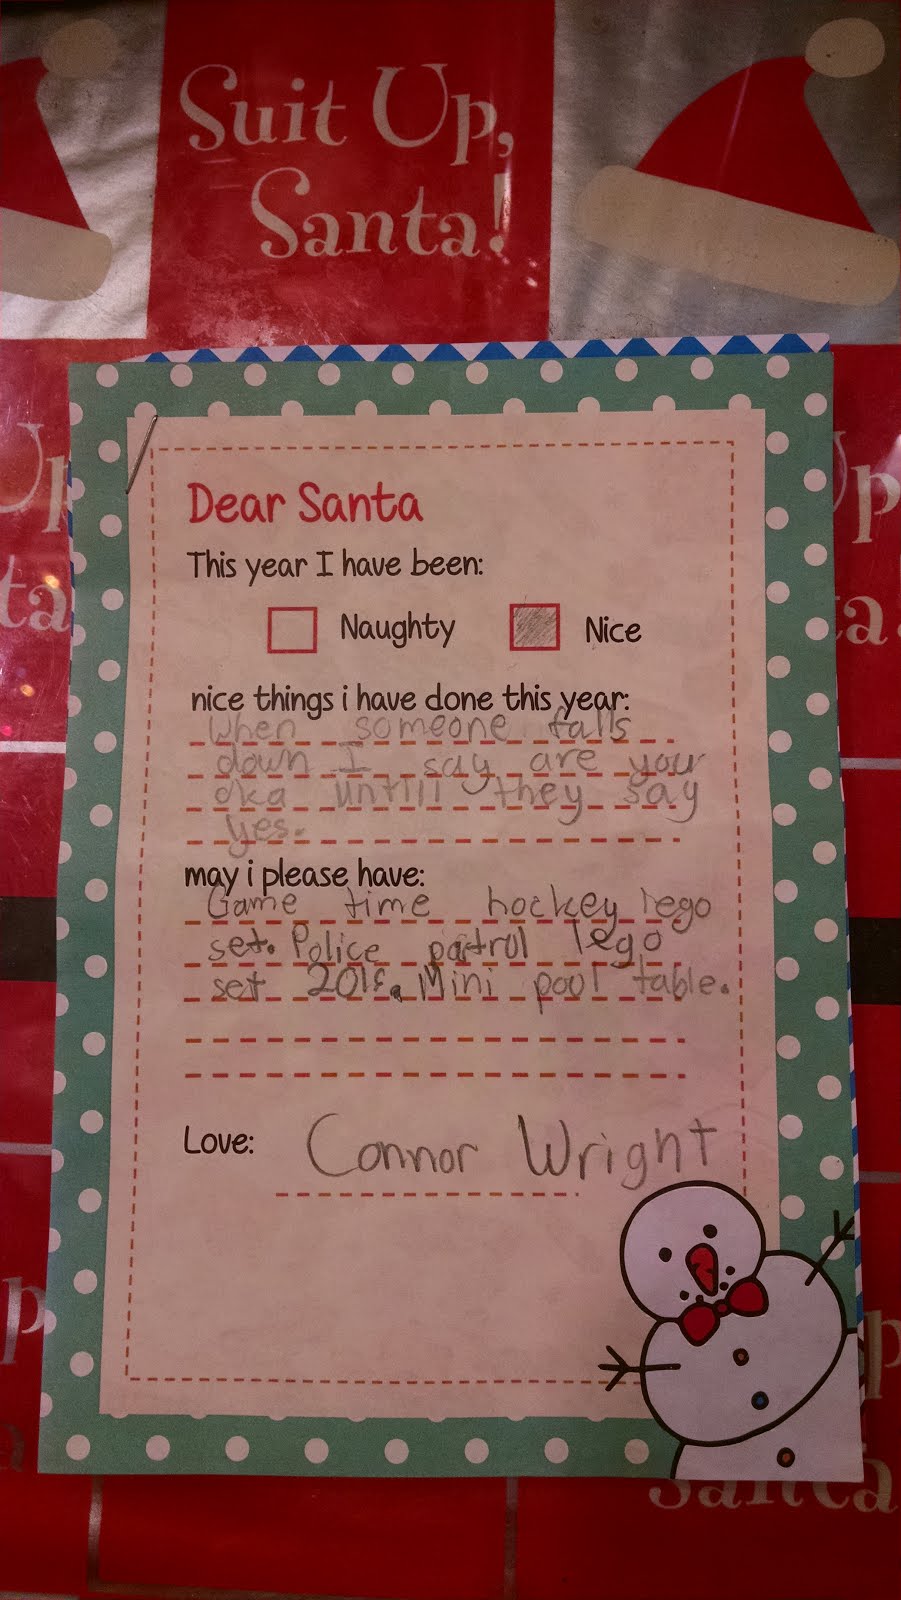 Suit Up,
Santa!
Up
ta
Up
ta
Dear Santa
This year I have been:
Naughty Nice
nice things i have done this year:
When someone falls
down I say are your
oka untill they say
yes.
may i please have:
Game time hockey lego
set. Police patrol lego
set Mini pool table.
Love: Connor Wright
Santa